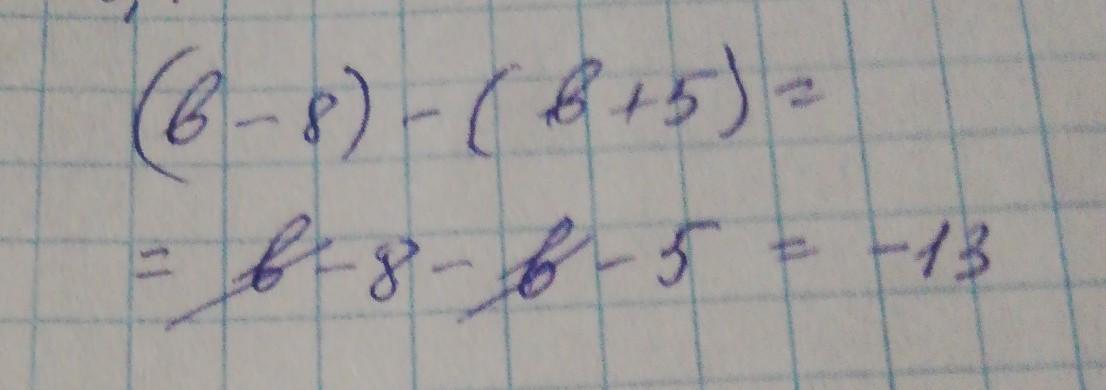 (b - 8) - (b + 5) =
= b - 8 - b - 5 = -13